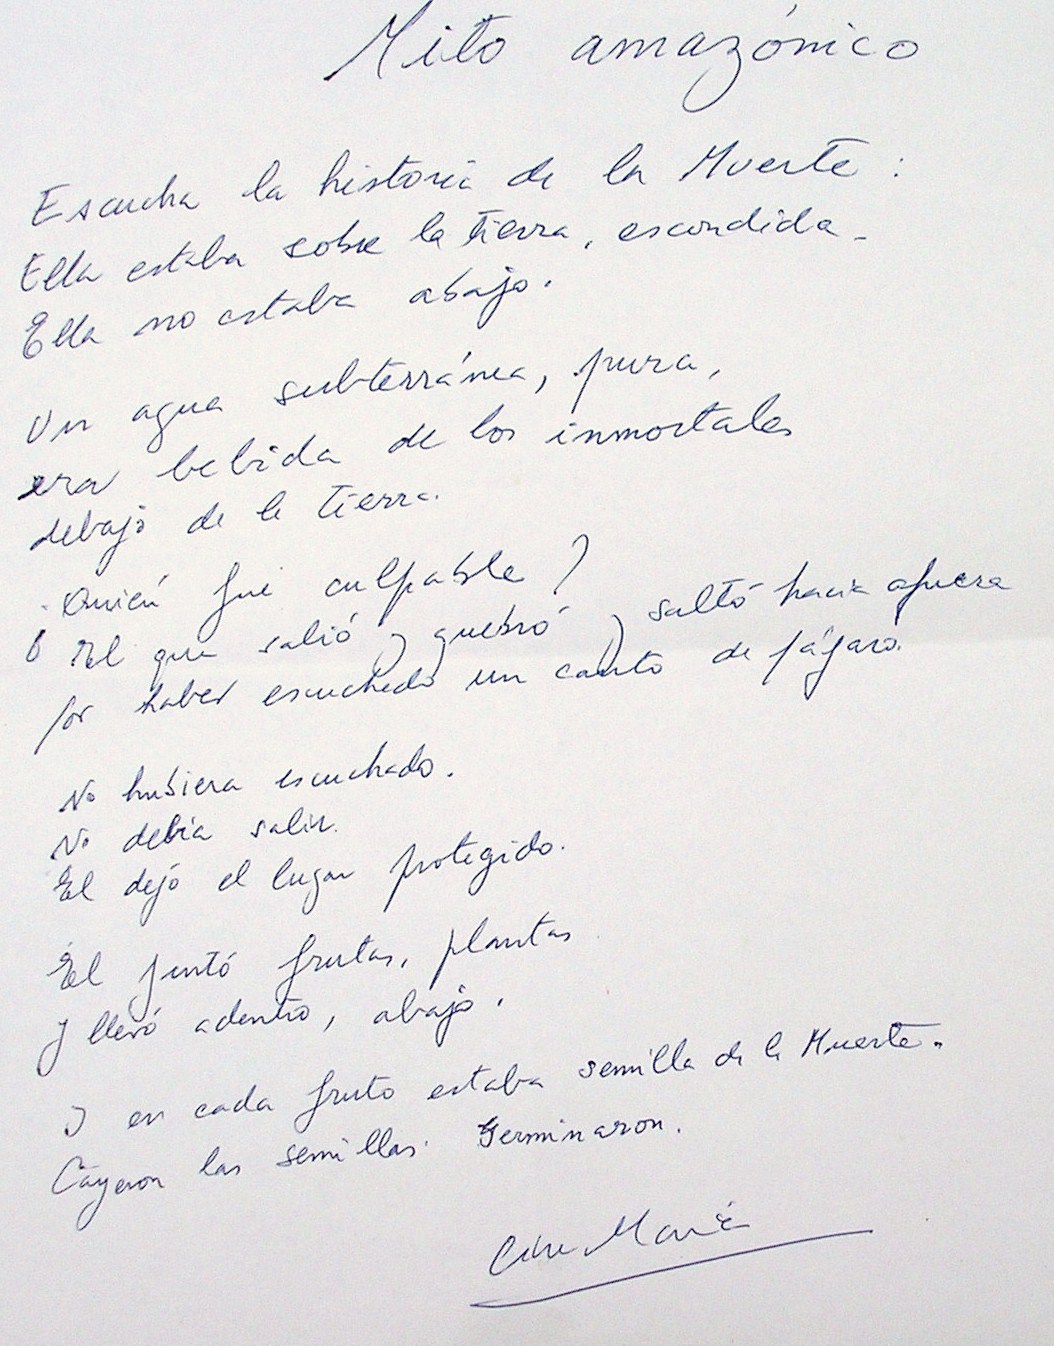 Mito amazónico
Escucha la historia de la Muerte:
Ella estaba sobre la tierra, escondida.
Ella no estaba abajo.
Un agua subterránea, pura,
era bebida de los inmortales
debajo de la tierra.
¿Quién fue culpable?
El que salió y quebró y saltó hacia afuera
por haber escuchado un canto de pájaro.
No hubiera escuchado.
No debía salir.
Él dejó el lugar protegido.
Él juntó frutas, plantas
y llevó adentro, abajo.
Y en cada fruto estaba semilla de la Muerte.
Cayeron las semillas. Germinaron.